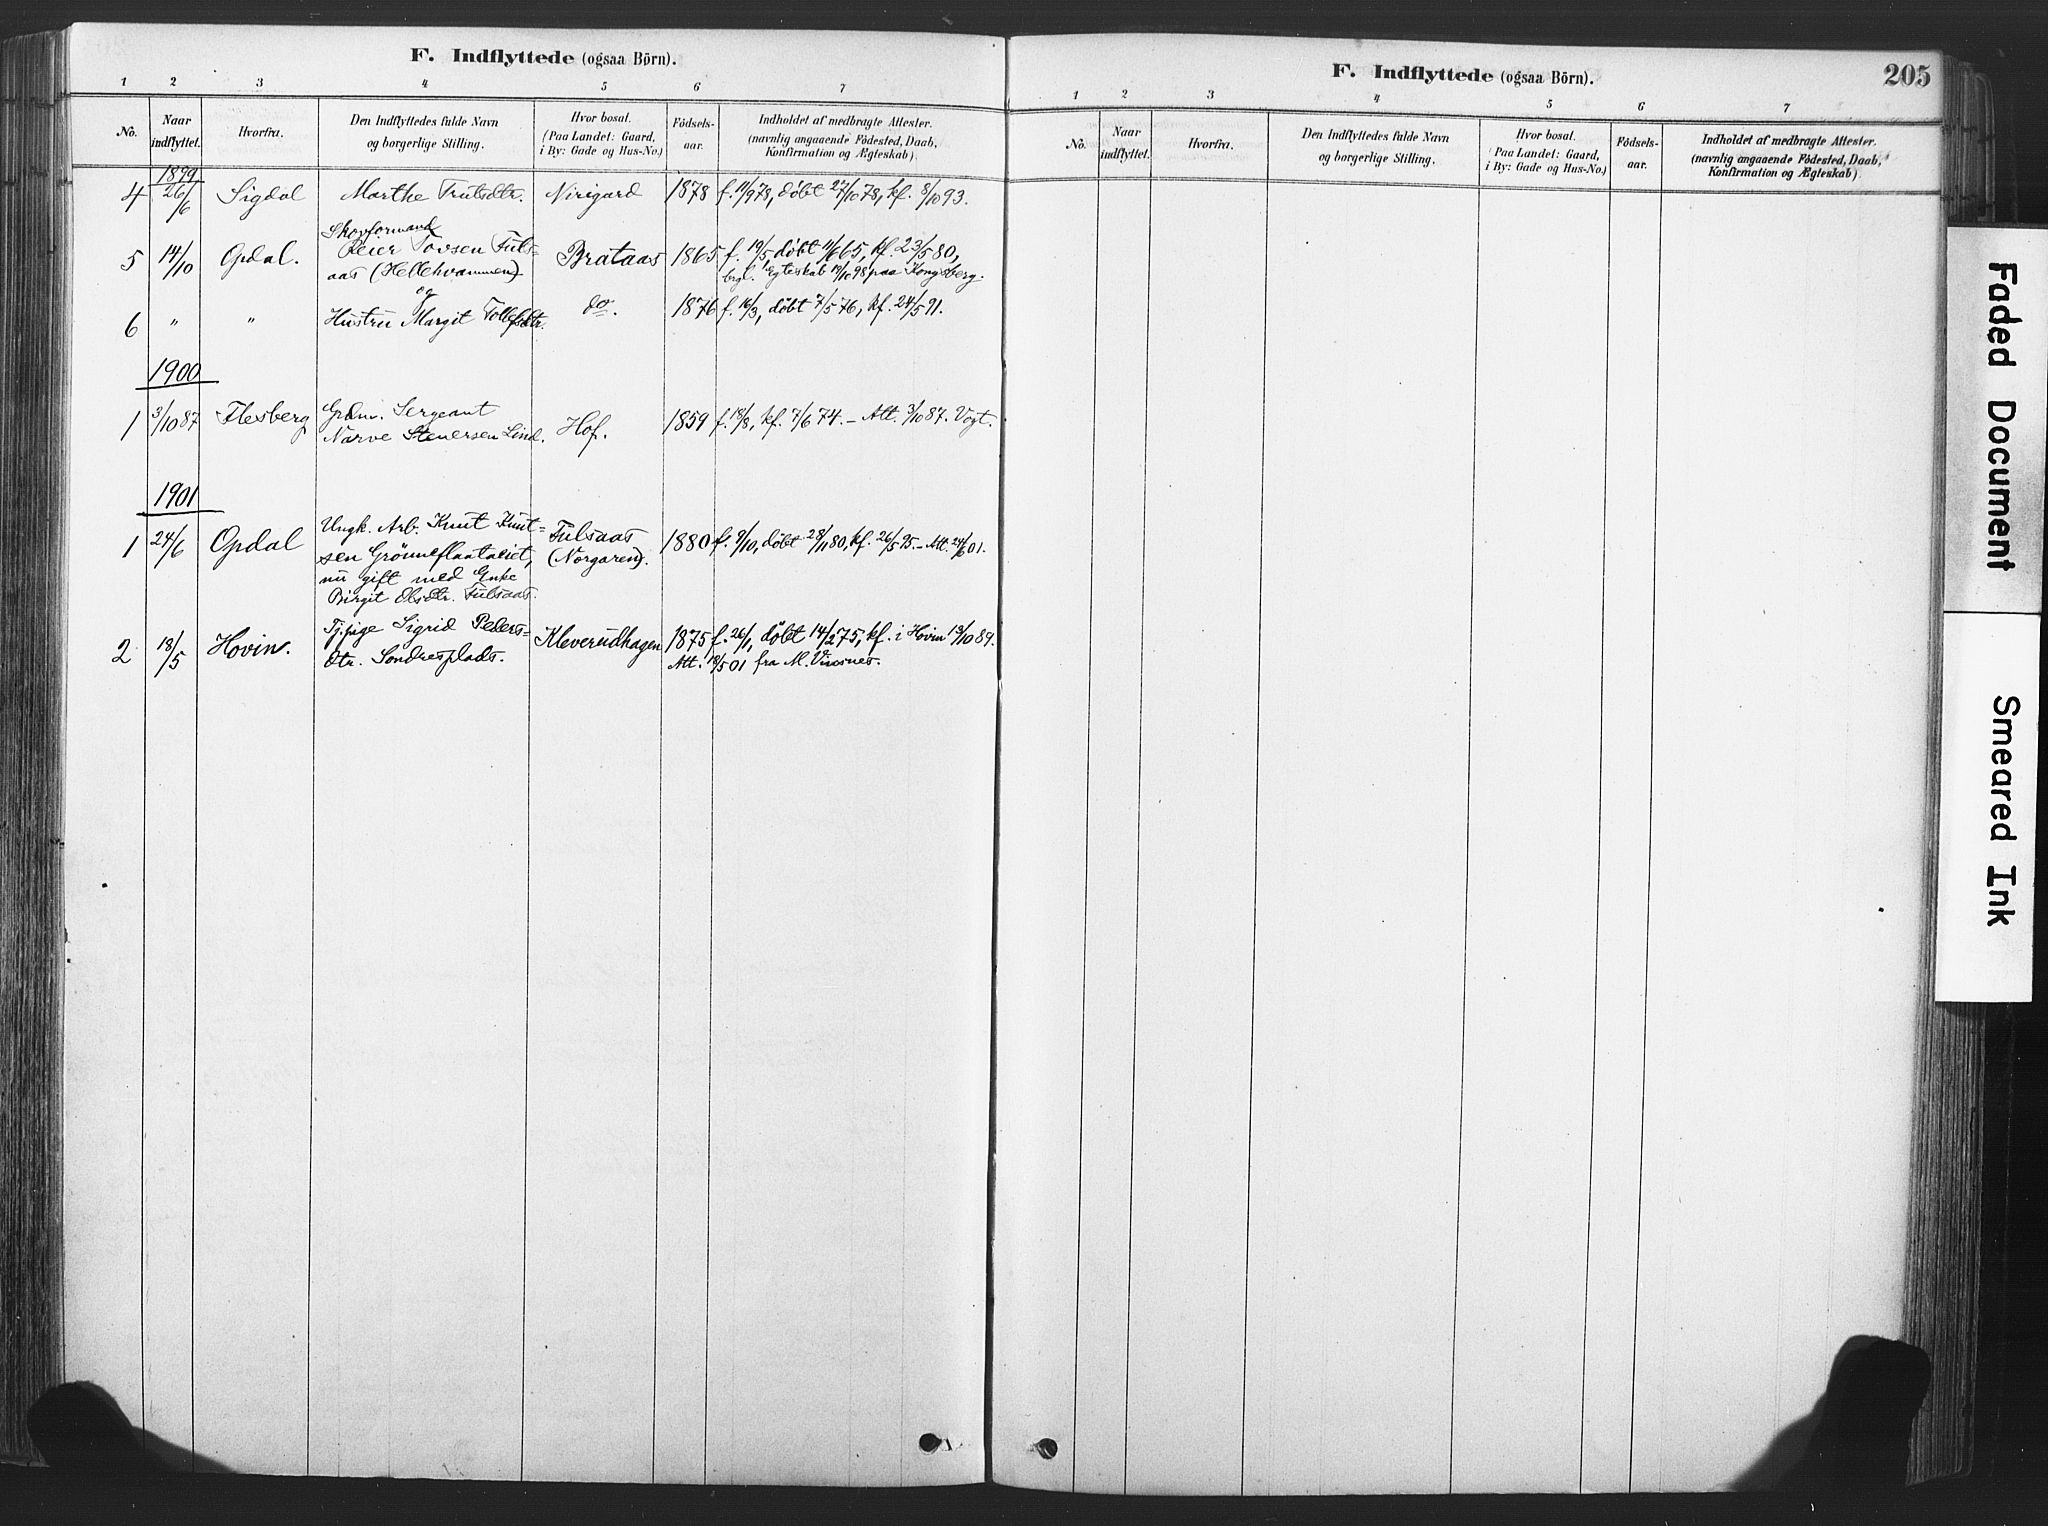 F. Indflyttede (ogsaa Börn).
1 2 3 4 5 6 7
No.
Naar
indflyttet.
Hvorfra.
Den Indflyttedes fulde Navn
og borgerlige Stilling.
Hvor bosat.
(Paa Landet: Gaard,
i By: Gade og Hus-No.)
Födsels-
aar.
Indholdet af medbragte Attester.
(navnlig angaaende Födested, Daab,
Konfirmation og Ægteskab).
1899
4 26/6 Sigdal Marthe Trulsdtr. Nirigard 1878 f. 11/9 78, døbt 27/10 78, kf. 8/10 93.
Skovformand
5 14/10 Opdal. Reier Tovsen Fuls- Brataas 1865 f. 19/5 døbt 11/6 65, kf. 23/5 80,
aas (Hellehvammen) brgl. Egteskab 19/10 98 paa Kongsberg.
og
6 " " Hustru Margit Tollefsdtr. do. 1876 f. 16/3, døbt 7/5 76, kf. 24/5 91.
1900
1 3/10 87 Flesberg Grdm. Sergeant
Narve Stenersen Lind. Hof. 1859 f. 18/8, kf. 7/6 74. – Att. 3/10 87. Vogt.
1901
1 24/6 Opdal Ungk. Arb. Knut Knut- Fulsaas 1880 f. 9/10, døbt 28/11 80, kf. 26/5 95. – Att. 24/6 01.
sen Grönneflaataeiet, (Norgaren).
nu gift med Enke
Birgit Olsdtr. Fulsaas.
2 18/5 Hovin. Tj. pige Sigrid Peders- Kleverudhagen 1875 f. 26/1, døbt 14/2 75, kf. i Hovin 13/10 89.
dtr. Sondresplads. Att. 18/5 01 fra M. Visnes.
F. Indflyttede (ogsaa Börn).
205
1 2 3 4 5 6 7
No.
Naar
indflyttet.
Hvorfra.
Den Indflyttedes fulde Navn
og borgerlige Stilling.
Hvor bosat.
(Paa Landet: Gaard,
i By: Gade og Hus-No.)
Födsels-
aar.
Indholdet af medbragte Attester.
(navnlig angaaende Födested, Daab,
Konfirmation og Ægteskab).
Faded Document
Smeared Ink